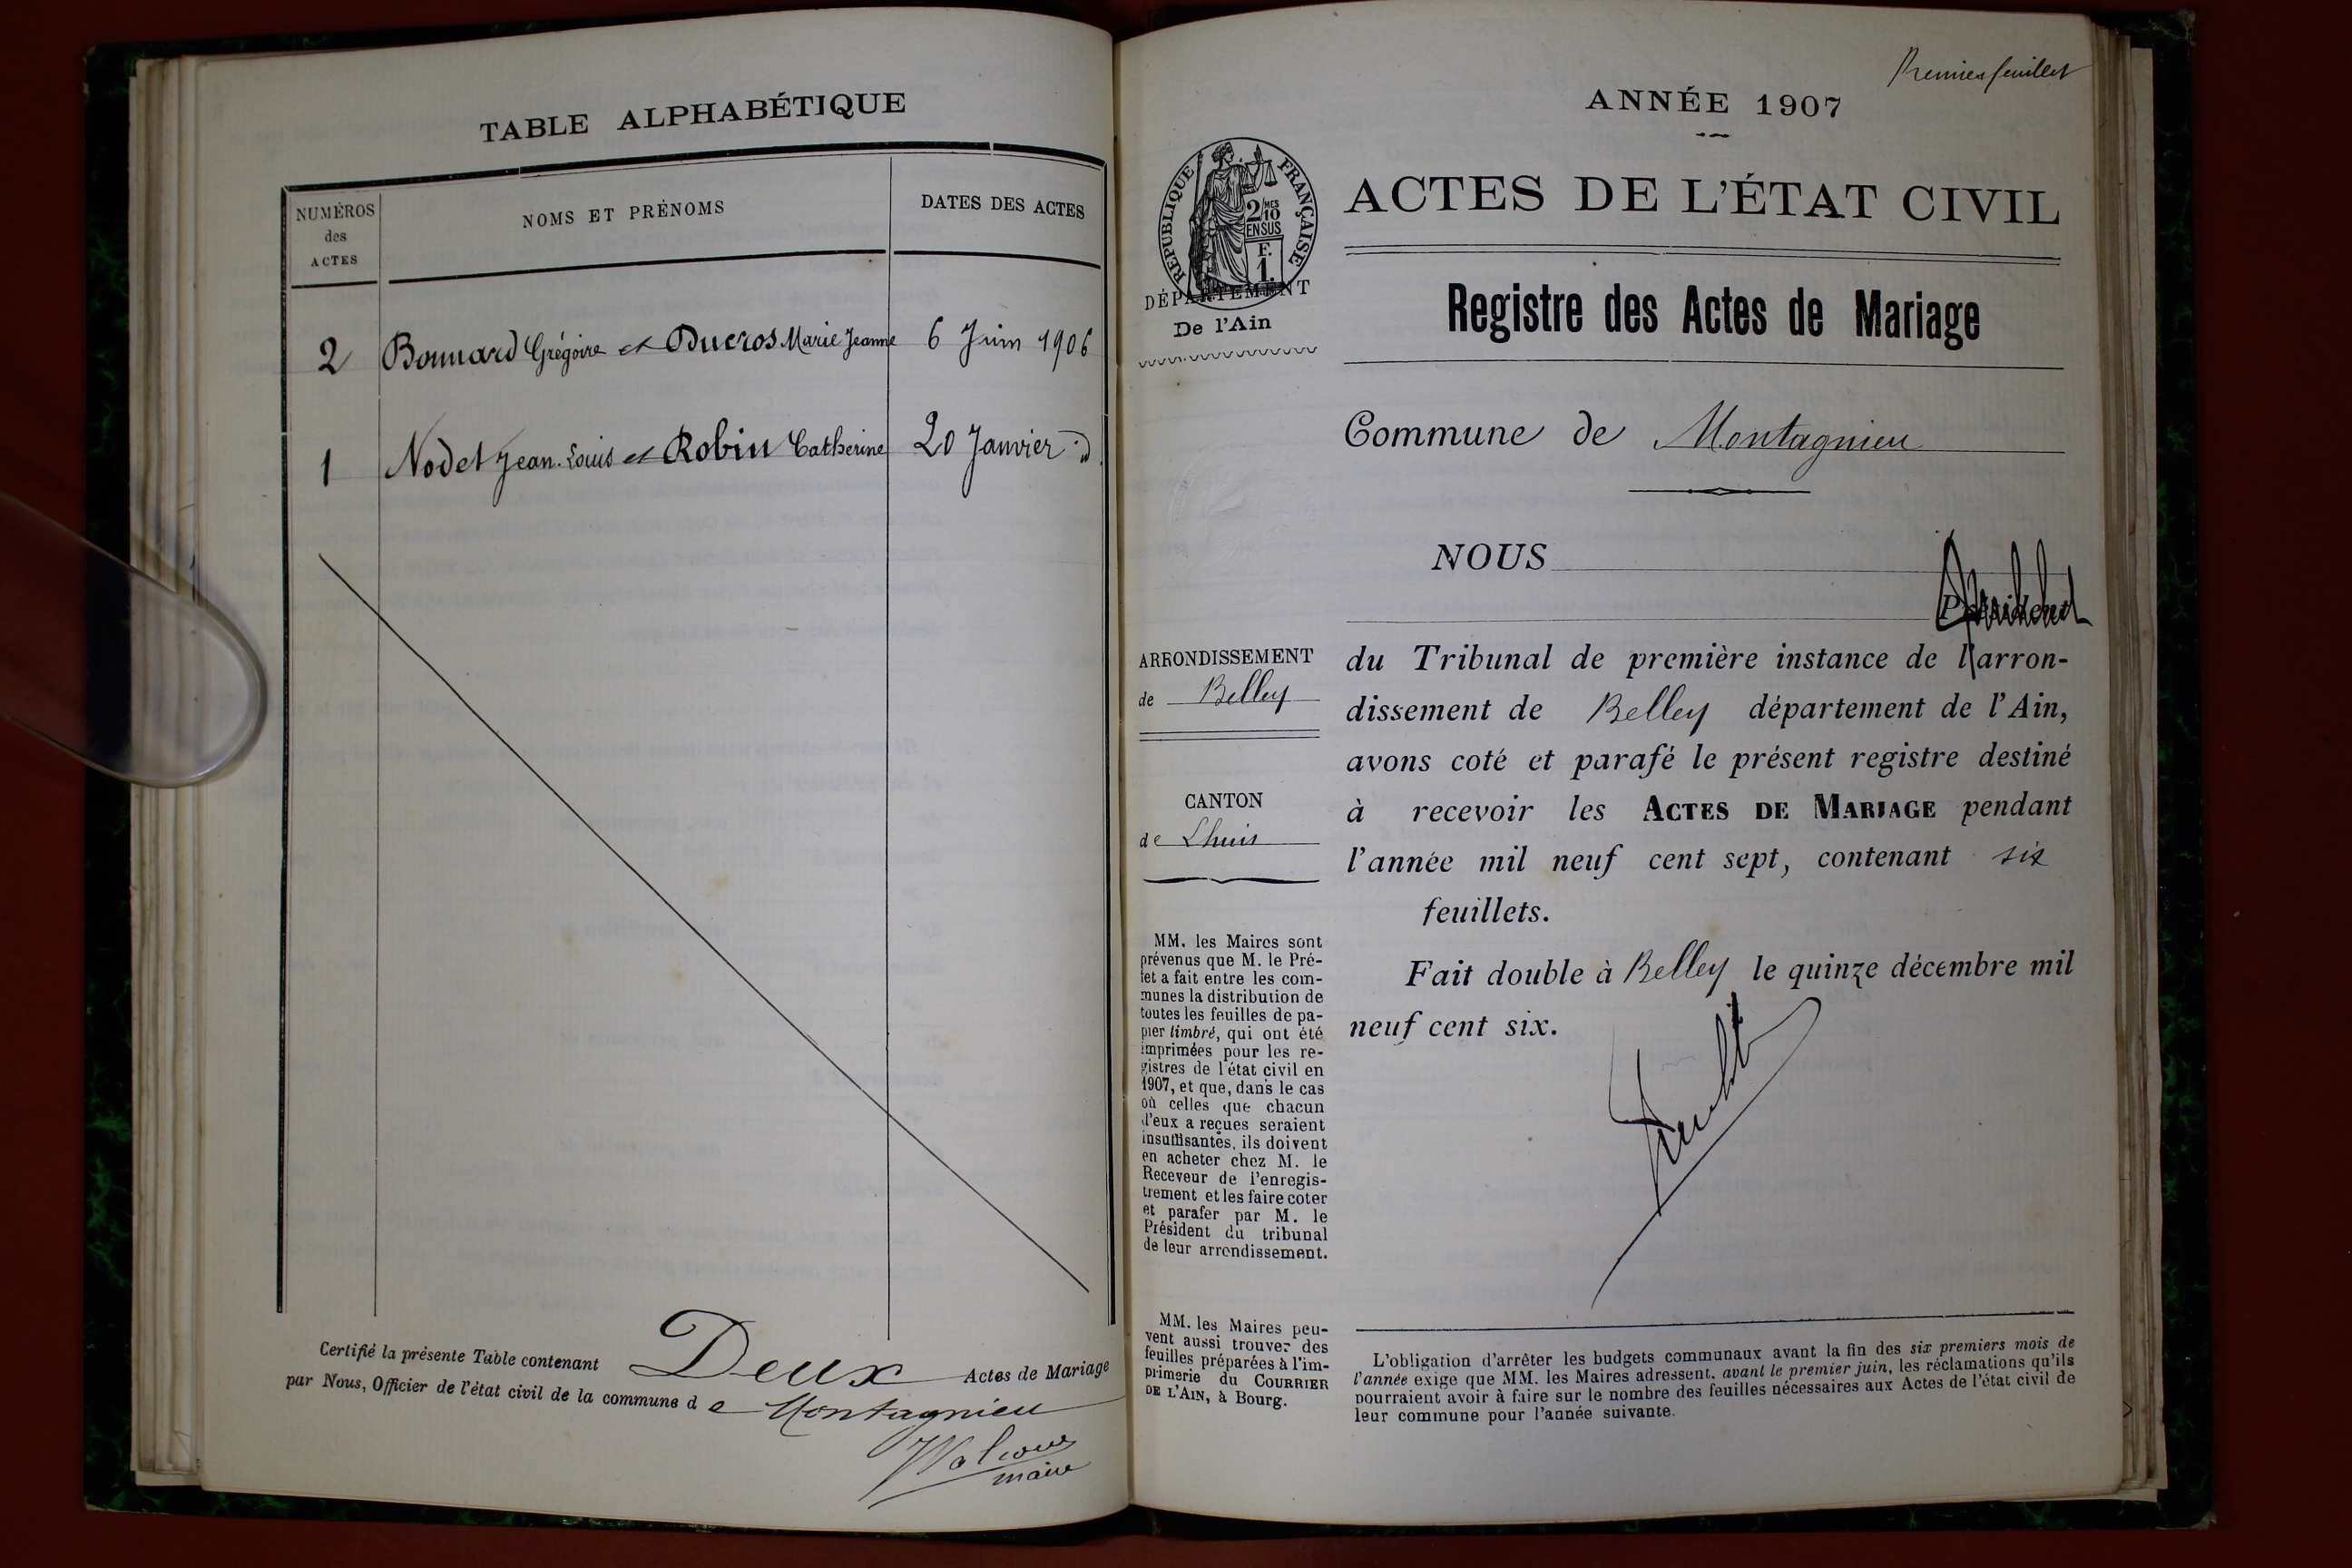 TABLE ALPHABÉTIQUE
NUMÉROS
des
ACTES
NOMS ET PRÉNOMS
DATES DES ACTES
2 Bonnard Grégoire et Ducros Marie Jeanne 6 Juin 1906
1 Nodet Jean-Louis et Robin Catherine 20 Janvier d
Certifié la présente Table contenant Deux Actes de Mariage
par Nous, Officier de l'état civil de la commune de Montagnieu
maire
Premier feuillet
ANNÉE 1907
RÉPUBLIQUE FRANÇAISE
2/10 MES
EN SUS
F.
1.
DÉPARTEMENT
De l'Ain
ACTES DE L'ÉTAT CIVIL
Registre des Actes de Mariage
Commune de Montagnieu
NOUS
Président
ARRONDISSEMENT
de Belley
CANTON
de Lhuis
du Tribunal de première instance de l'arron-
dissement de Belley département de l'Ain,
avons coté et parafé le présent registre destiné
à recevoir les ACTES DE MARIAGE pendant
l'année mil neuf cent sept, contenant six
feuillets.
Fait double à Belley le quinze décembre mil
neuf cent six.
MM. les Maires sont
prévenus que M. le Pré-
fet a fait entre les com-
munes la distribution de
toutes les feuilles de pa-
pier timbré, qui ont été
imprimées pour les re-
gistres de l'état civil en
1907, et que, dans le cas
où celles que chacun
d'eux a reçues seraient
insuffisantes, ils doivent
en acheter chez M. le
Receveur de l'enregis-
trement et les faire coter
et parafer par M. le
Président du tribunal
de leur arrondissement.
MM. les Maires peu-
vent aussi trouver des
feuilles préparées à l'im-
primerie du COURRIER
DE L'AIN, à Bourg.
L'obligation d'arrêter les budgets communaux avant la fin des six premiers mois de
l'année exige que MM. les Maires adressent, avant le premier juin, les réclamations qu'ils
pourraient avoir à faire sur le nombre des feuilles nécessaires aux Actes de l'état civil de
leur commune pour l'année suivante.